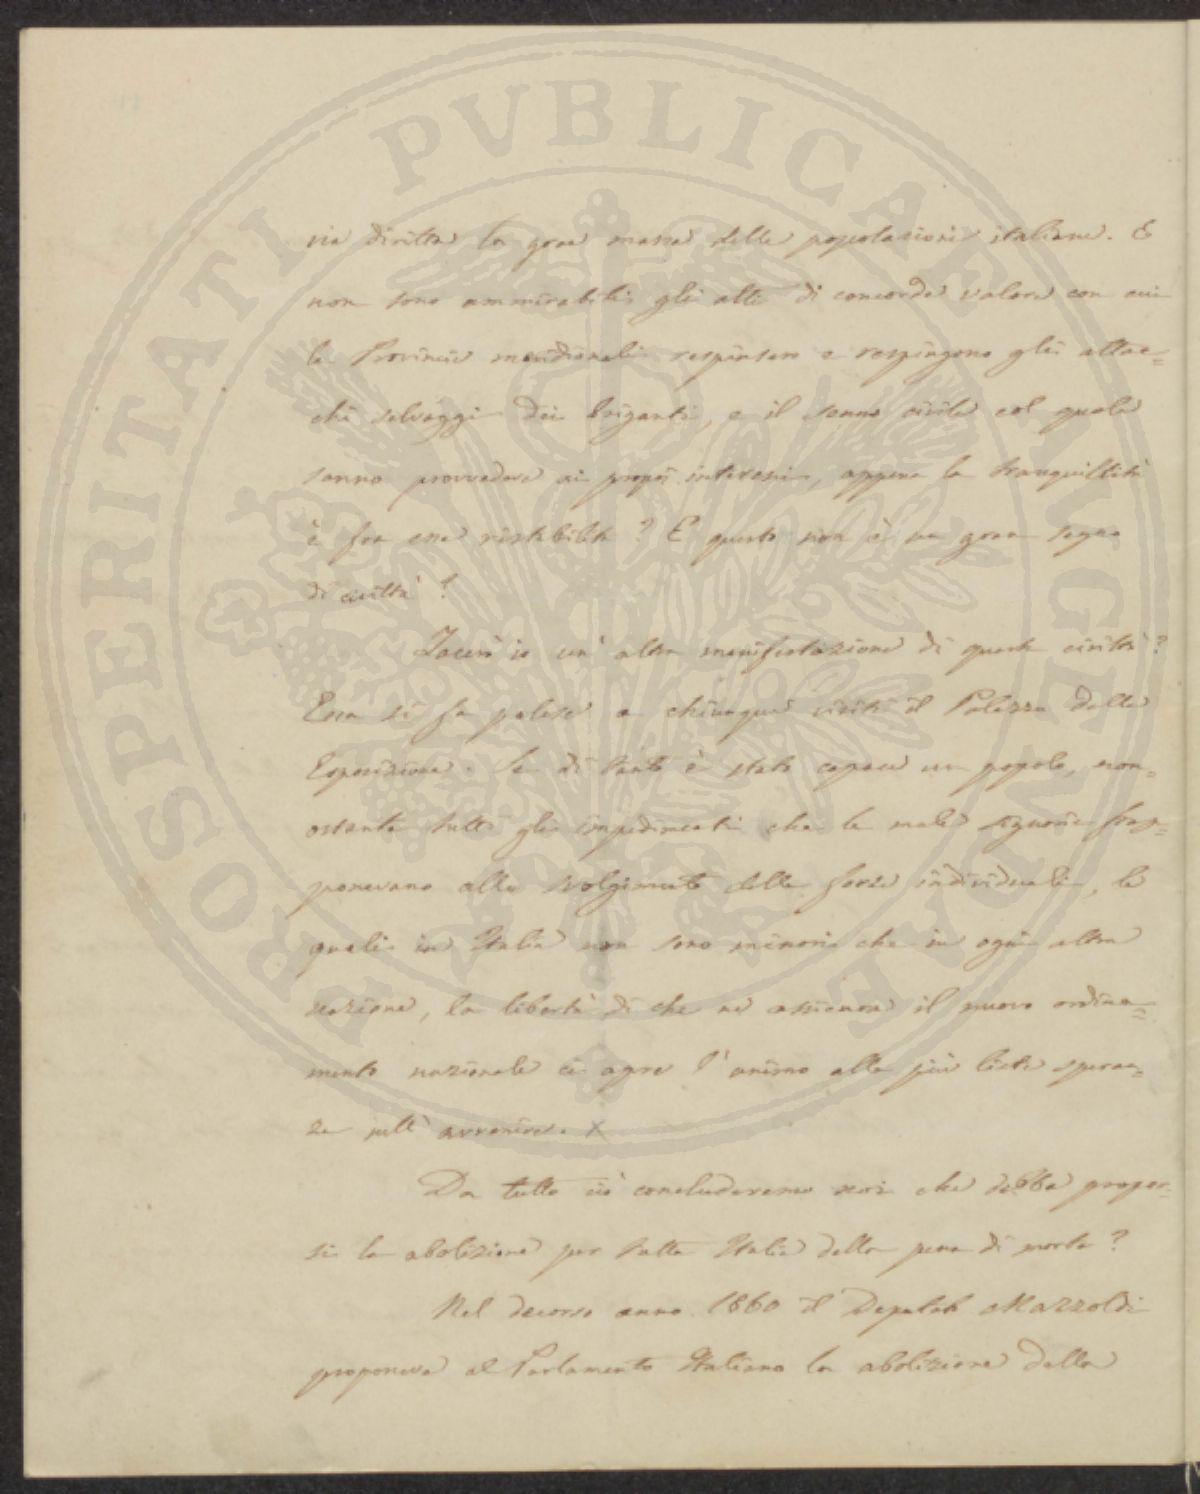 via diritta la gran massa delle popolazioni italiane. E
non sono ammirabili gli atti di concorde valore con cui
le Provincie meridionali respinsero e respingono gli attac=
chi selvaggi dei briganti, e il senno civile col quale
sanno provvedere ai propij interessi, appena la tranquillità
è fra esse ristabilita? E questo non è un gran segno
di civiltà?
Tacerò io un' altra manifestazione di questa civiltà?
Essa si fa palese a chiunque visiti il Palazzo della
Esposizione. Se di tanto è stato capace un popolo, non=
ostante tutti gli impedimenti che le male signorie frap=
ponevano allo svolgimento delle forze individuali, le
quali in Italia non sono minori che in ogni altra
nazione, la libertà di che ne assicura il nuovo ordina=
mento nazionale ci apre l' animo alle più liete speran=
ze sull' avvenire. X
Da tutto ciò concluderemo noi che debba propor=
si la abolizione per tutta Italia della pena di morte?
Nel decorso anno 1860 il Deputato Mazzoldi
proponeva al Parlamento Italiano la abolizione della
PROSPERITATI PVBLICAE AVGENDAE